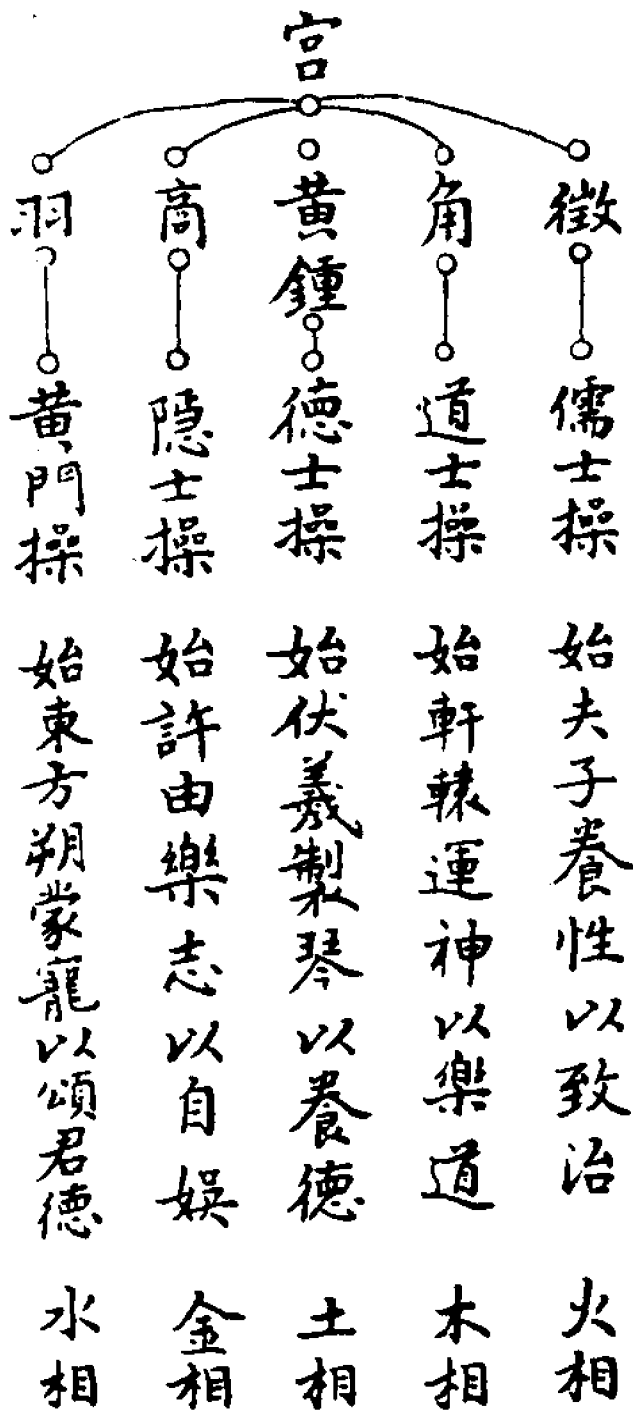 宮
徵
儒士操
始夫子養性以致治
火相
角
道士操
始軒轅運神以樂道
木相
黃鍾
德士操
始伏羲製琴以養德
土相
商
隱士操
始許由樂志以自娛
金相
羽
黃門操
始東方朔蒙寵以頌君德
水相